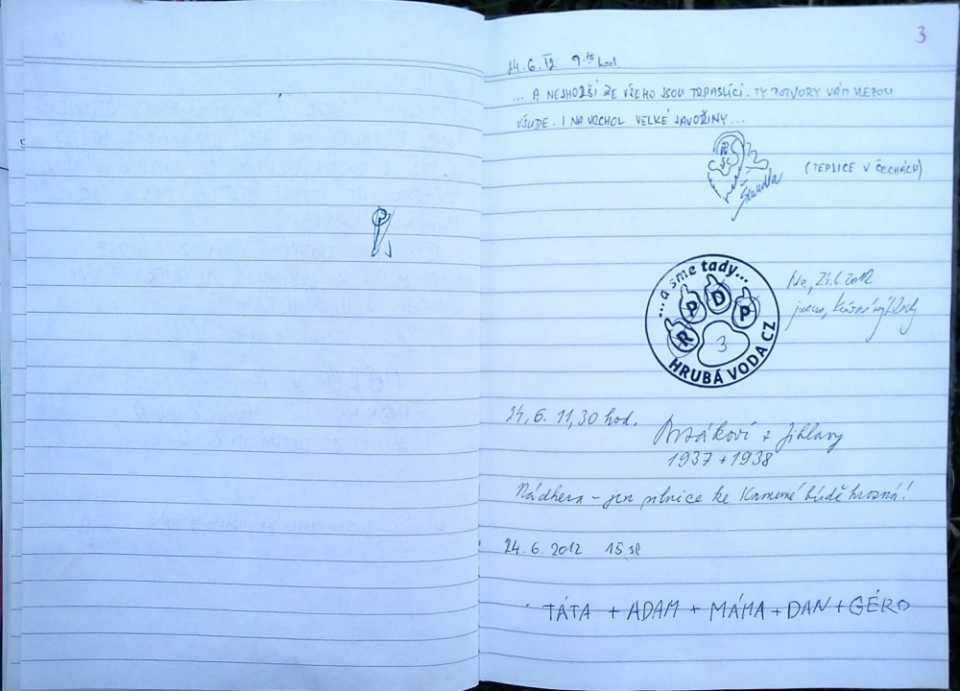 3
24.6.12 9.15 hod.
... A NEJHORŠÍ ZE VŠEHO JSOU TRPASLÍCI. TY POTVORY VÁM VLEZOU
VŠUDE. I NA VRCHOL VELKÉ JAVOŘINY...
Štandla
(TEPLICE V ČECHÁCH)
...a sme tady...
R P D P
3
HRUBÁ VODA CZ
Ne, 24.6.2012
krásné výhledy
24.6. 11,30 hod.
z Jihlavy
1937 + 1938
Nádhera - jen silnice ke Kamenné búdě hrozná!
24.6.2012 15
TÁTA + ADAM + MÁMA + DAN + GÉRO